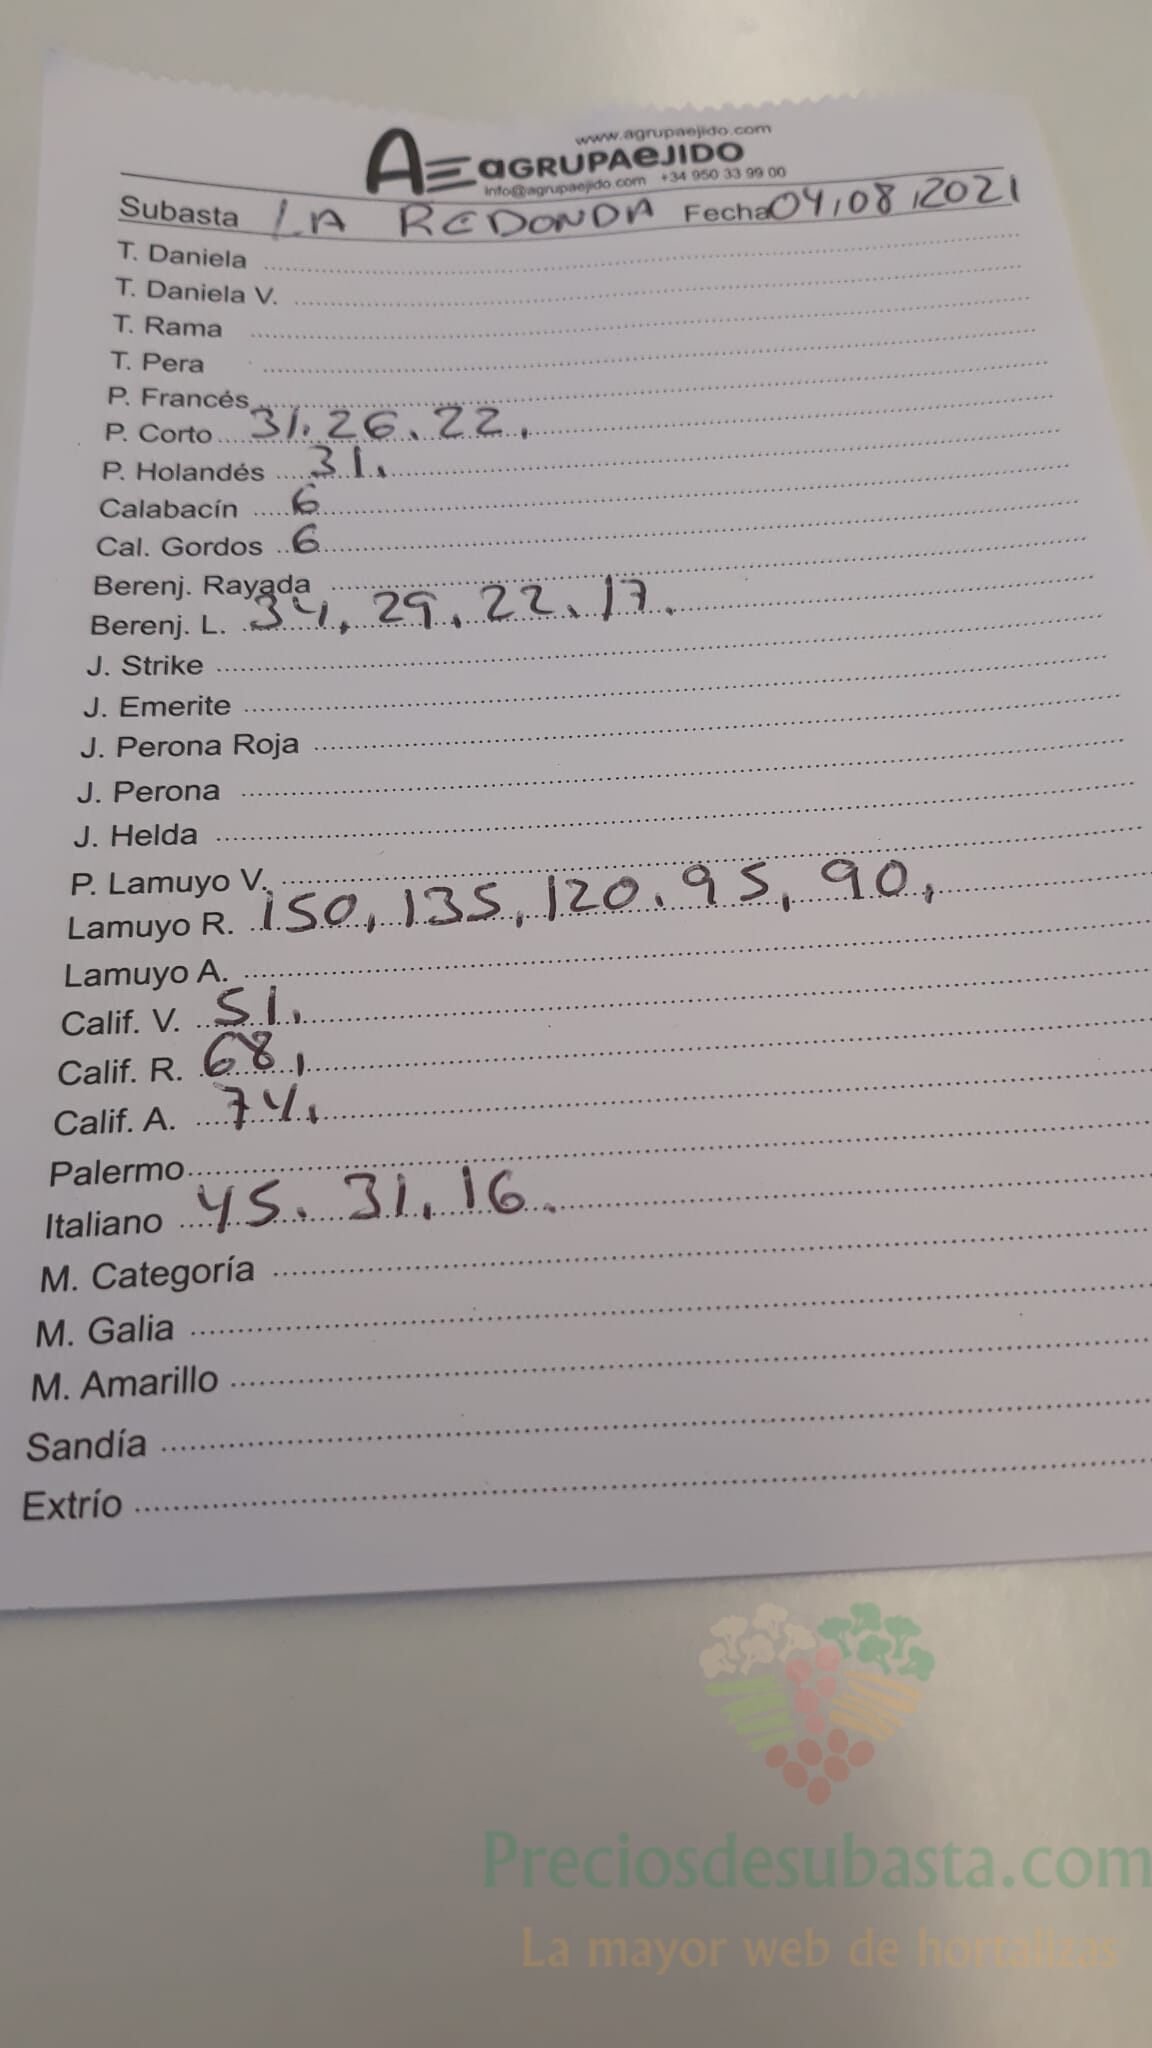 www.agrupaejido.com
AE aGRUPAeJIDO
info@agrupaejido.com +34 950 33 99 00
Subasta LA REDONDA Fecha 04,08,2021
T. Daniela
T. Daniela V.
T. Rama
T. Pera
P. Francés
P. Corto 31. 26. 22.
P. Holandés 31.
Calabacín 6
Cal. Gordos 6
Berenj. Rayada
Berenj. L. 34, 29. 22. 17.
J. Strike
J. Emerite
J. Perona Roja
J. Perona
J. Helda
P. Lamuyo V.
Lamuyo R. 150, 135, 120. 95, 90,
Lamuyo A.
Calif. V. 51.
Calif. R. 68,
Calif. A. 74.
Palermo
Italiano 45. 31, 16.
M. Categoría
M. Galia
M. Amarillo
Sandía
Extrío
Preciosdesubasta.com
La mayor web de hortalizas